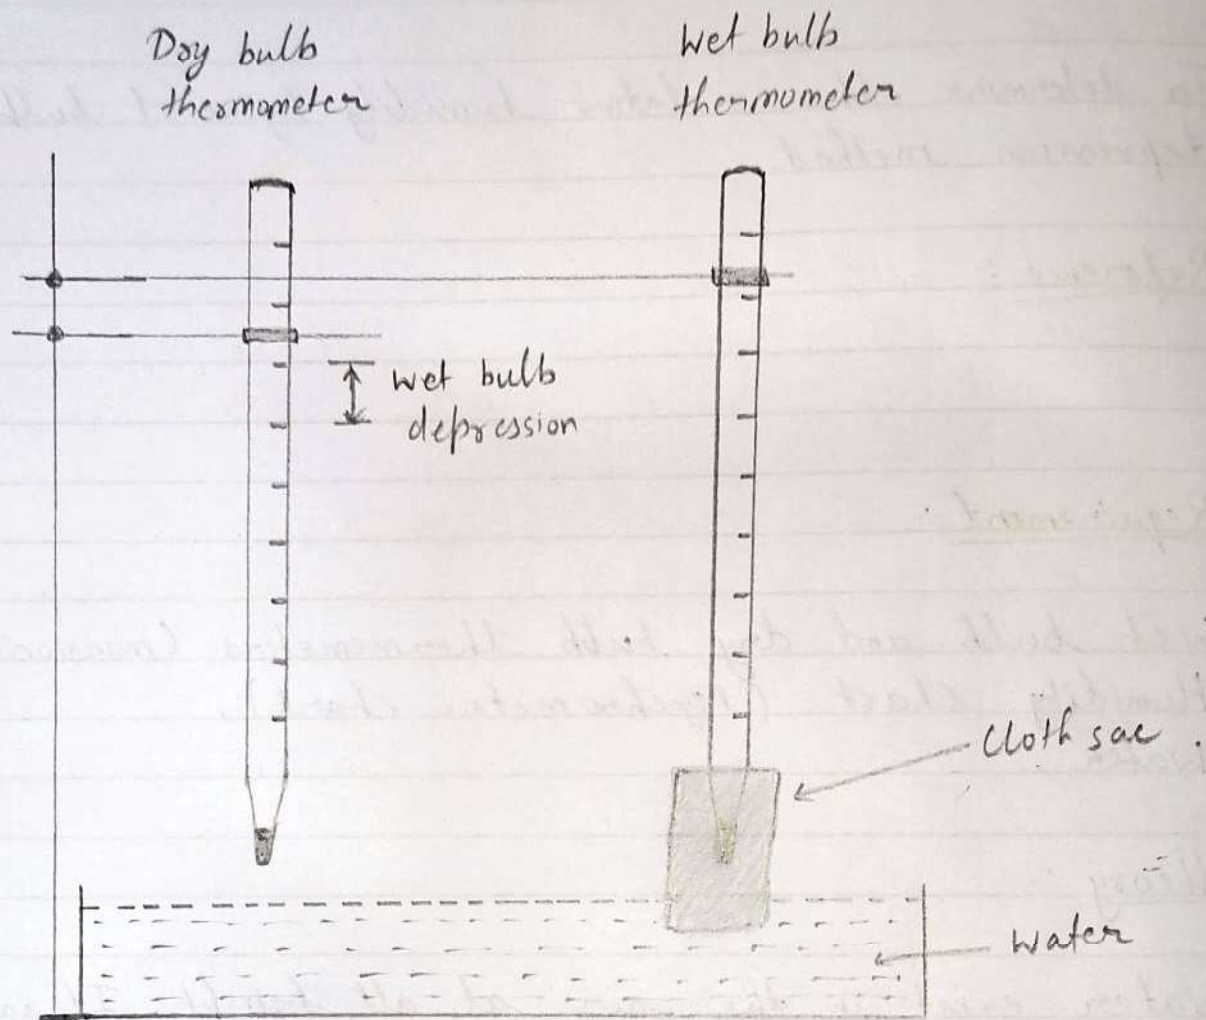 Dry bulb
thermometer
Wet bulb
thermometer
Wet bulb
depression
Cloth sac
Water